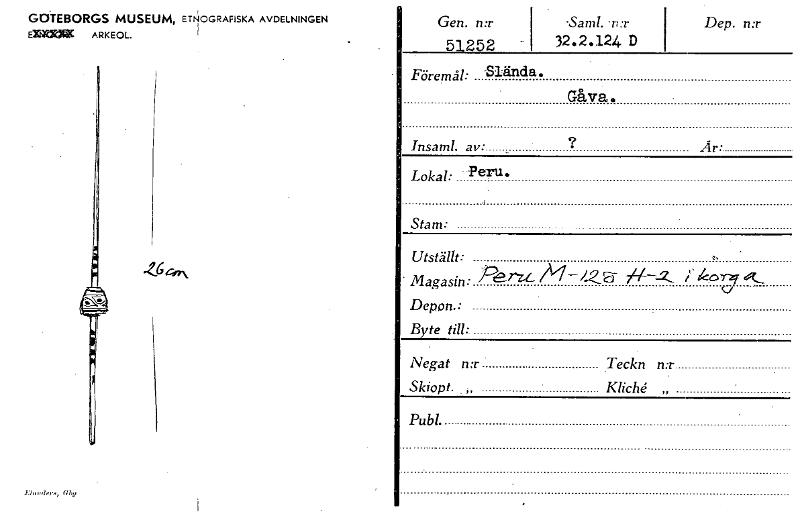 GÖTEBORGS MUSEUM, ETNOGRAFISKA AVDELNINGEN
ARKEOL.
26 cm
Elanders, Gbg
Gen. n:r Saml. n:r Dep. n:r
51252 32.2.124 D
Föremål: Slända.
Gåva.
Insaml. av: ? År:
Lokal: Peru.
Stam:
Utställt:
Magasin: Peru M-128 H-2 i korga
Depon.:
Byte till:
Negat n:r Teckn n:r
Skiopt. „ Kliché „
Publ.